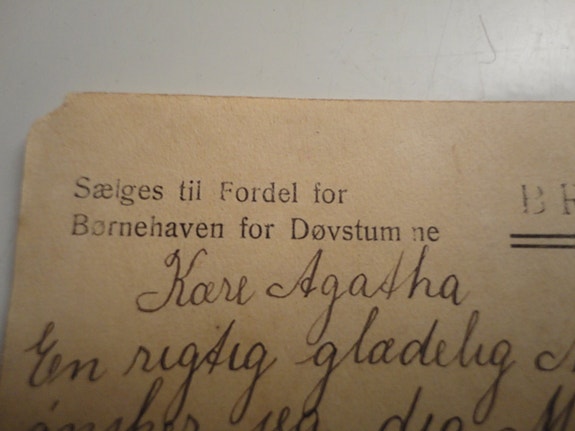 Sælges til Fordel for
Børnehaven for Døvstumne
Kære Agatha
En rigtig glædelig
ønsker jeg dig